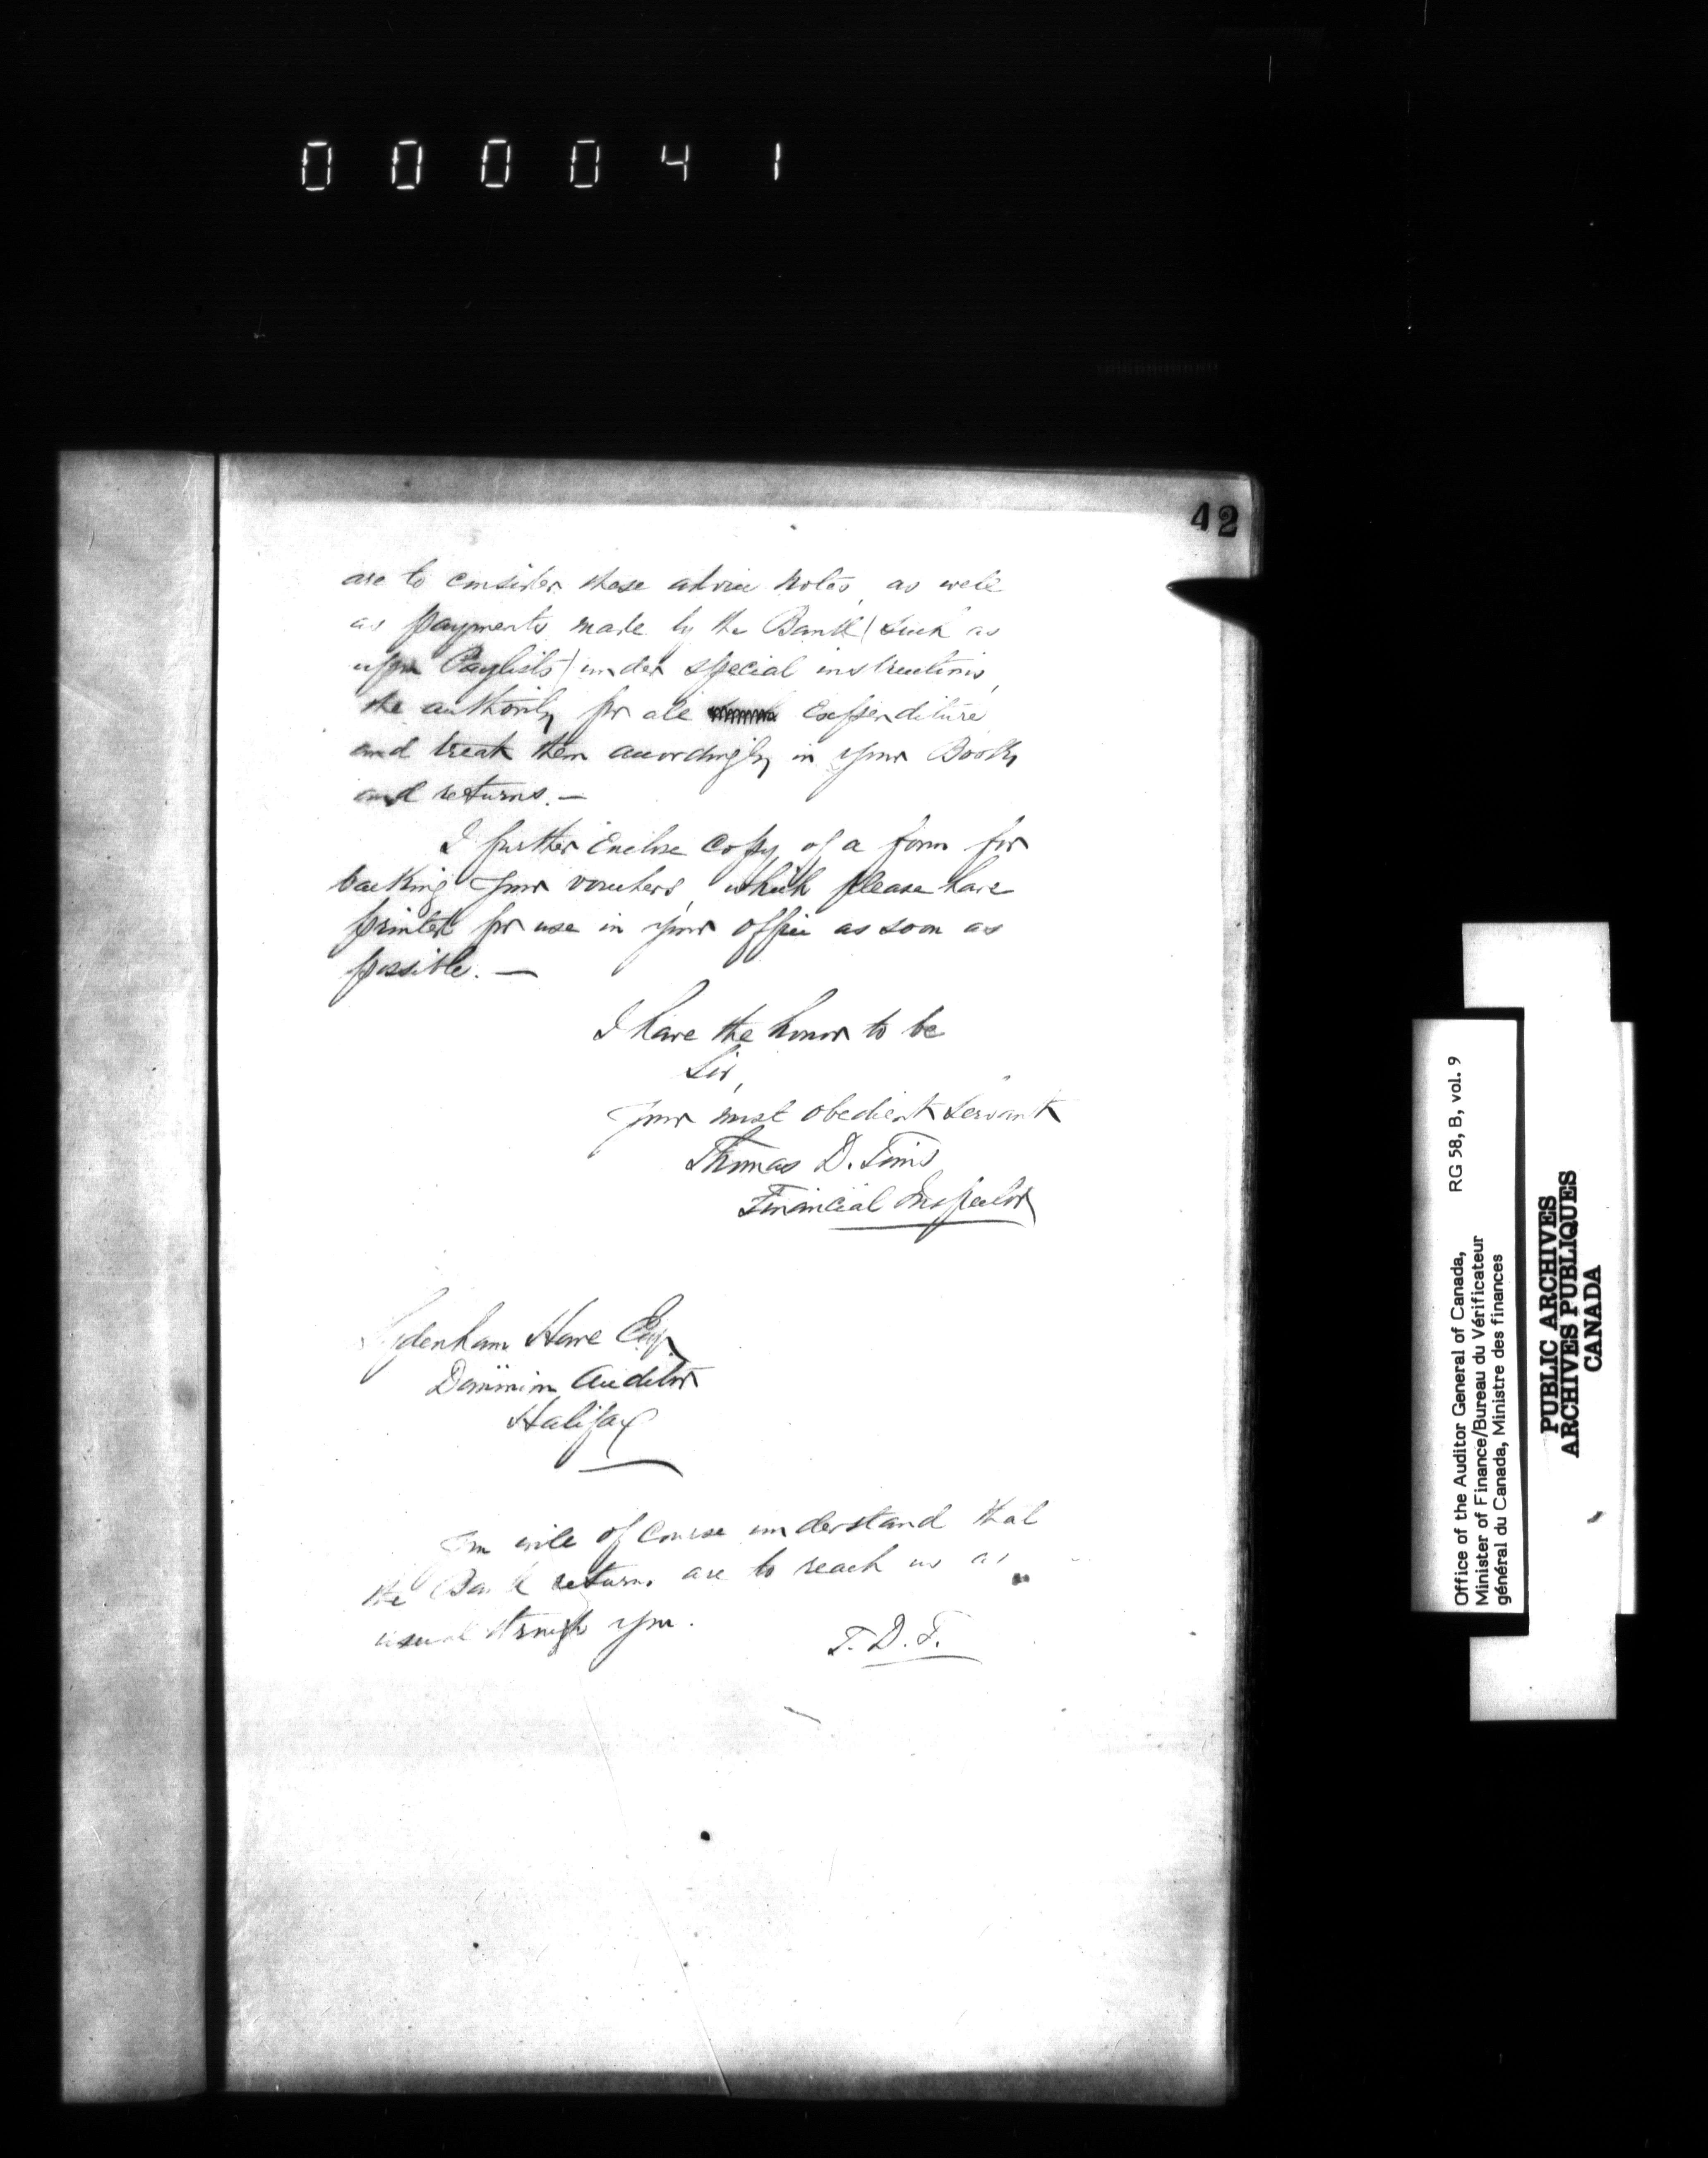 000041
42
are to consider these advice notes, as well
as payments made by the Bank (such as
upon Paylists) under special instructions,
the authority for all Expenditure
and treat them accordingly in your Books
and returns. —
I further Enclose Copy of a form for
backing your vouchers, which please have
printed for use in your office as soon as
possible. —
I have the honor to be
Sir,
Your most obedient Servant
Thomas D. Tims
Financial Inspector
Sydenham Howe Esqr.
Dominion Auditor
Halifax
You will of Course understand that
the Bank returns are to reach us as
usual through you.
T. D. T.
Office of the Auditor General of Canada,
Minister of Finance/Bureau du Vérificateur
général du Canada, Ministre des finances
RG 58, B, vol. 9
PUBLIC ARCHIVES
ARCHIVES PUBLIQUES
CANADA